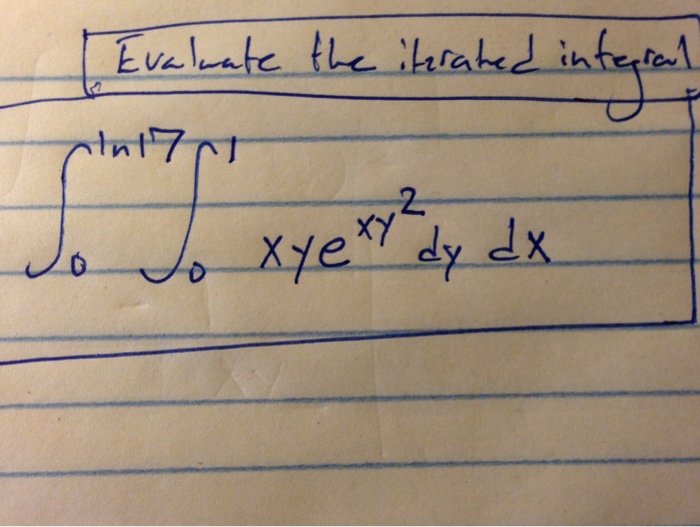 Evaluate the iterated integral
∫₀^{ln17} ∫₀^{1} xye^{xy²} dy dx